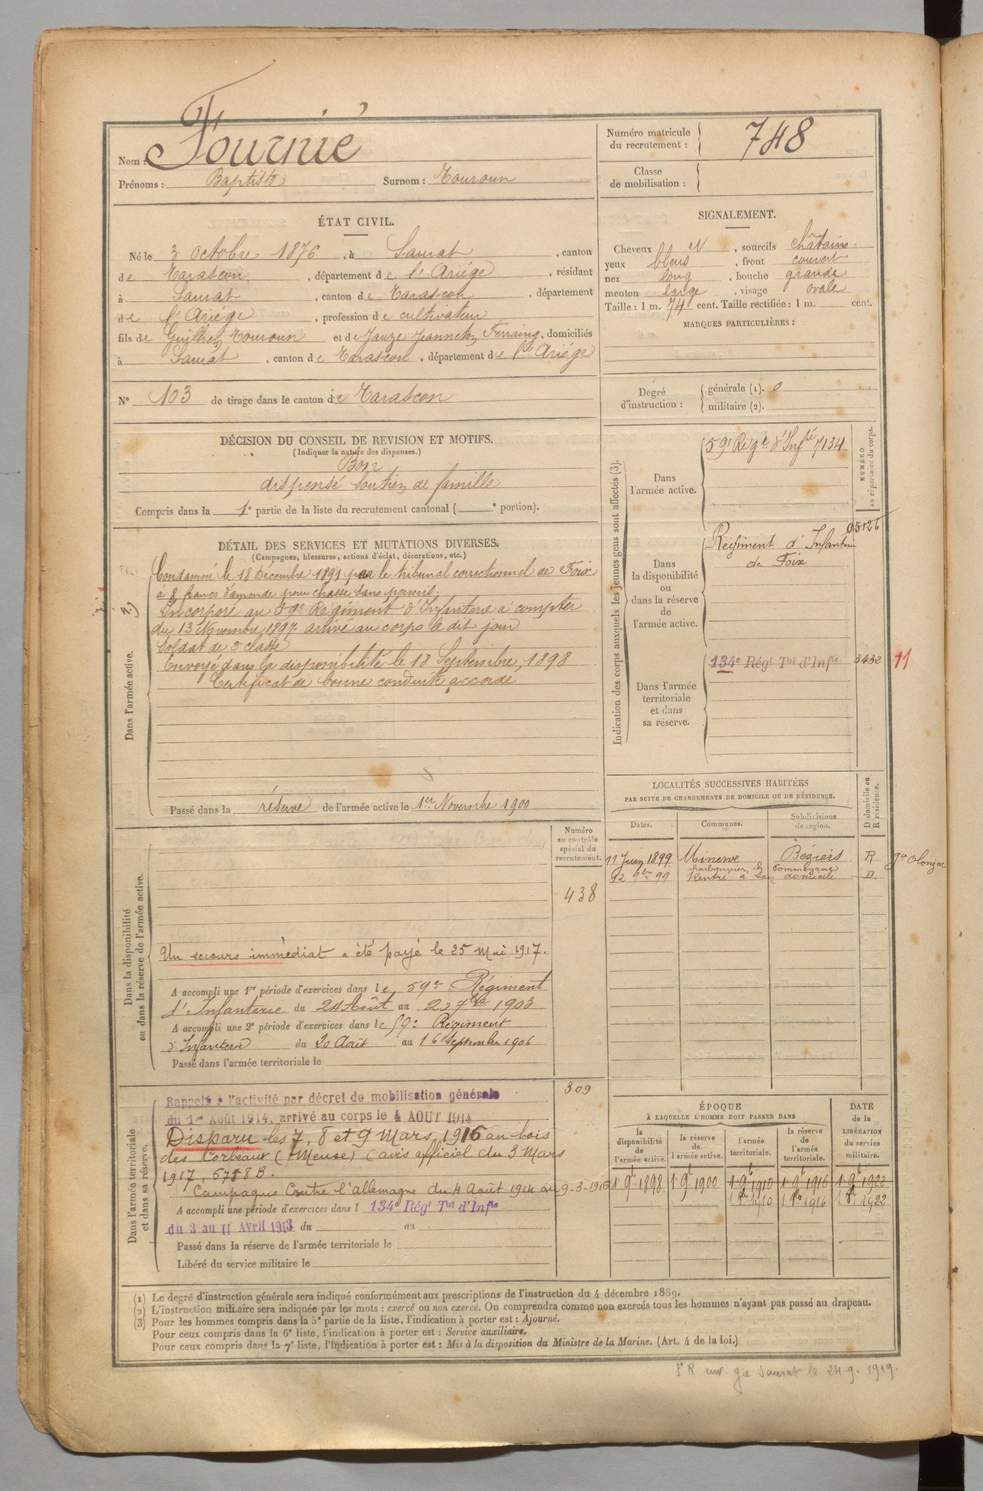 Nom : Fournié
Prénoms : Baptiste Surnom : Touroun
Numéro matricule du recrutement : 748
Classe de mobilisation :
ÉTAT CIVIL.
Né le 3 octobre 1876, à Saurat, canton
de Tarascon, département de l'Ariége, résidant
à Saurat, canton de Tarascon, département
de l'Ariége, profession de cultivateur
fils de Guilhem Touroun et de Jeanneton, domiciliés
à Saurat, canton de Tarascon, département de l'Ariége
N° 103 de tirage dans le canton de Tarascon
SIGNALEMENT.
Cheveux N, sourcils châtains
yeux bleus, front couvert
nez long, bouche grande
menton large, visage ovale
Taille : 1 m. 741 cent. Taille rectifiée : 1 m. cent.
MARQUES PARTICULIÈRES :
Degré d'instruction : générale (1). 0
militaire (2).
DÉCISION DU CONSEIL DE REVISION ET MOTIFS.
(Indiquer la nature des dispenses.)
Bon
dispensé soutien de famille
Compris dans la 1e partie de la liste du recrutement cantonal ( e portion).
DÉTAIL DES SERVICES ET MUTATIONS DIVERSES.
(Campagnes, blessures, actions d'éclat, décorations, etc.)
Dans l'armée active.
Condamné le 18 Décembre 1891 par le tribunal correctionnel de Foix
à 8 francs d'amende pour chasse sans permis.
Incorporé au 59e Régiment d'Infanterie à compter
du 13 Novembre 1897 arrivé au corps le dit jour
Soldat de 2e classe
Envoyé dans la disponibilité le 18 Septembre 1898
Certificat de bonne conduite accordé
Passé dans la réserve de l'armée active le 1er Novembre 1900
Indication des corps auxquels les jeunes gens sont affectés (3).
NUMÉRO au répertoire du corps.
Dans l'armée active. 59e Régt d'Infie 7134
Dans la disponibilité ou dans la réserve de l'armée active.
Régiment d'Infanterie 05126
de Foix
Dans l'armée territoriale et dans sa réserve.
134e Régt Tal d'Infie 3432 11
LOCALITÉS SUCCESSIVES HABITÉES
PAR SUITE DE CHANGEMENTS DE DOMICILE OU DE RÉSIDENCE.
Dates. Communes. Subdivisions de région. D domicile ou R résidence.
11 Juin 1899 Minerve Béziers R
12 9bre 99 Rentré à son domicile D
Numéro au contrôle spécial du recrutement.
438
Dans la disponibilité ou dans la réserve de l'armée active.
Un secours immédiat a été payé le 25 Mai 1917.
A accompli une 1re période d'exercices dans le 59e Régiment
d'Infanterie du 24 Août au 20 7bre 1903
A accompli une 2e période d'exercices dans le 59e Régiment
d'Infanterie du 20 Août au 16 Septembre 1906
Passé dans l'armée territoriale le
Dans l'armée territoriale et dans sa réserve.
309
Rappelé à l'activité par décret de mobilisation générale
du 1er Août 1914, arrivé au corps le 4 AOUT 1914
Disparu les 7, 8 et 9 Mars 1916 au bois
des Corbeaux (Meuse) (avis officiel du 3 Mars
1917, 6758 B.
Campagne Contre l'allemagne du 4 Août 1914 au 9-3-1916
A accompli une période d'exercices dans l 134e Régt Tal d'Infie
du 3 au 11 Avril 1913 du au
Passé dans la réserve de l'armée territoriale le
Libéré du service militaire le
ÉPOQUE
À LAQUELLE L'HOMME DOIT PASSER DANS
la disponibilité de l'armée active. la réserve de l'armée active. l'armée territoriale. la réserve de l'armée territoriale.
DATE de la LIBÉRATION du service militaire.
1 9b 1898 1 9b 1900 1 9b 1910 1 9b 1916 1 9b 1922
1 8b 1910 1 8b 1916 1 8b 1922
(1) Le degré d'instruction générale sera indiqué conformément aux prescriptions de l'instruction du 4 décembre 1889.
(2) L'instruction militaire sera indiquée par les mots : exercé ou non exercé. On comprendra comme non exercés tous les hommes n'ayant pas passé au drapeau.
(3) Pour les hommes compris dans la 5e partie de la liste, l'indication à porter est : Ajourné.
Pour ceux compris dans la 6e liste, l'indication à porter est : Service auxiliaire.
Pour ceux compris dans la 7e liste, l'indication à porter est : Mis à la disposition du Ministre de la Marine. (Art. 4 de la loi.)
FR env. gie Saurat le 24-9-1919.